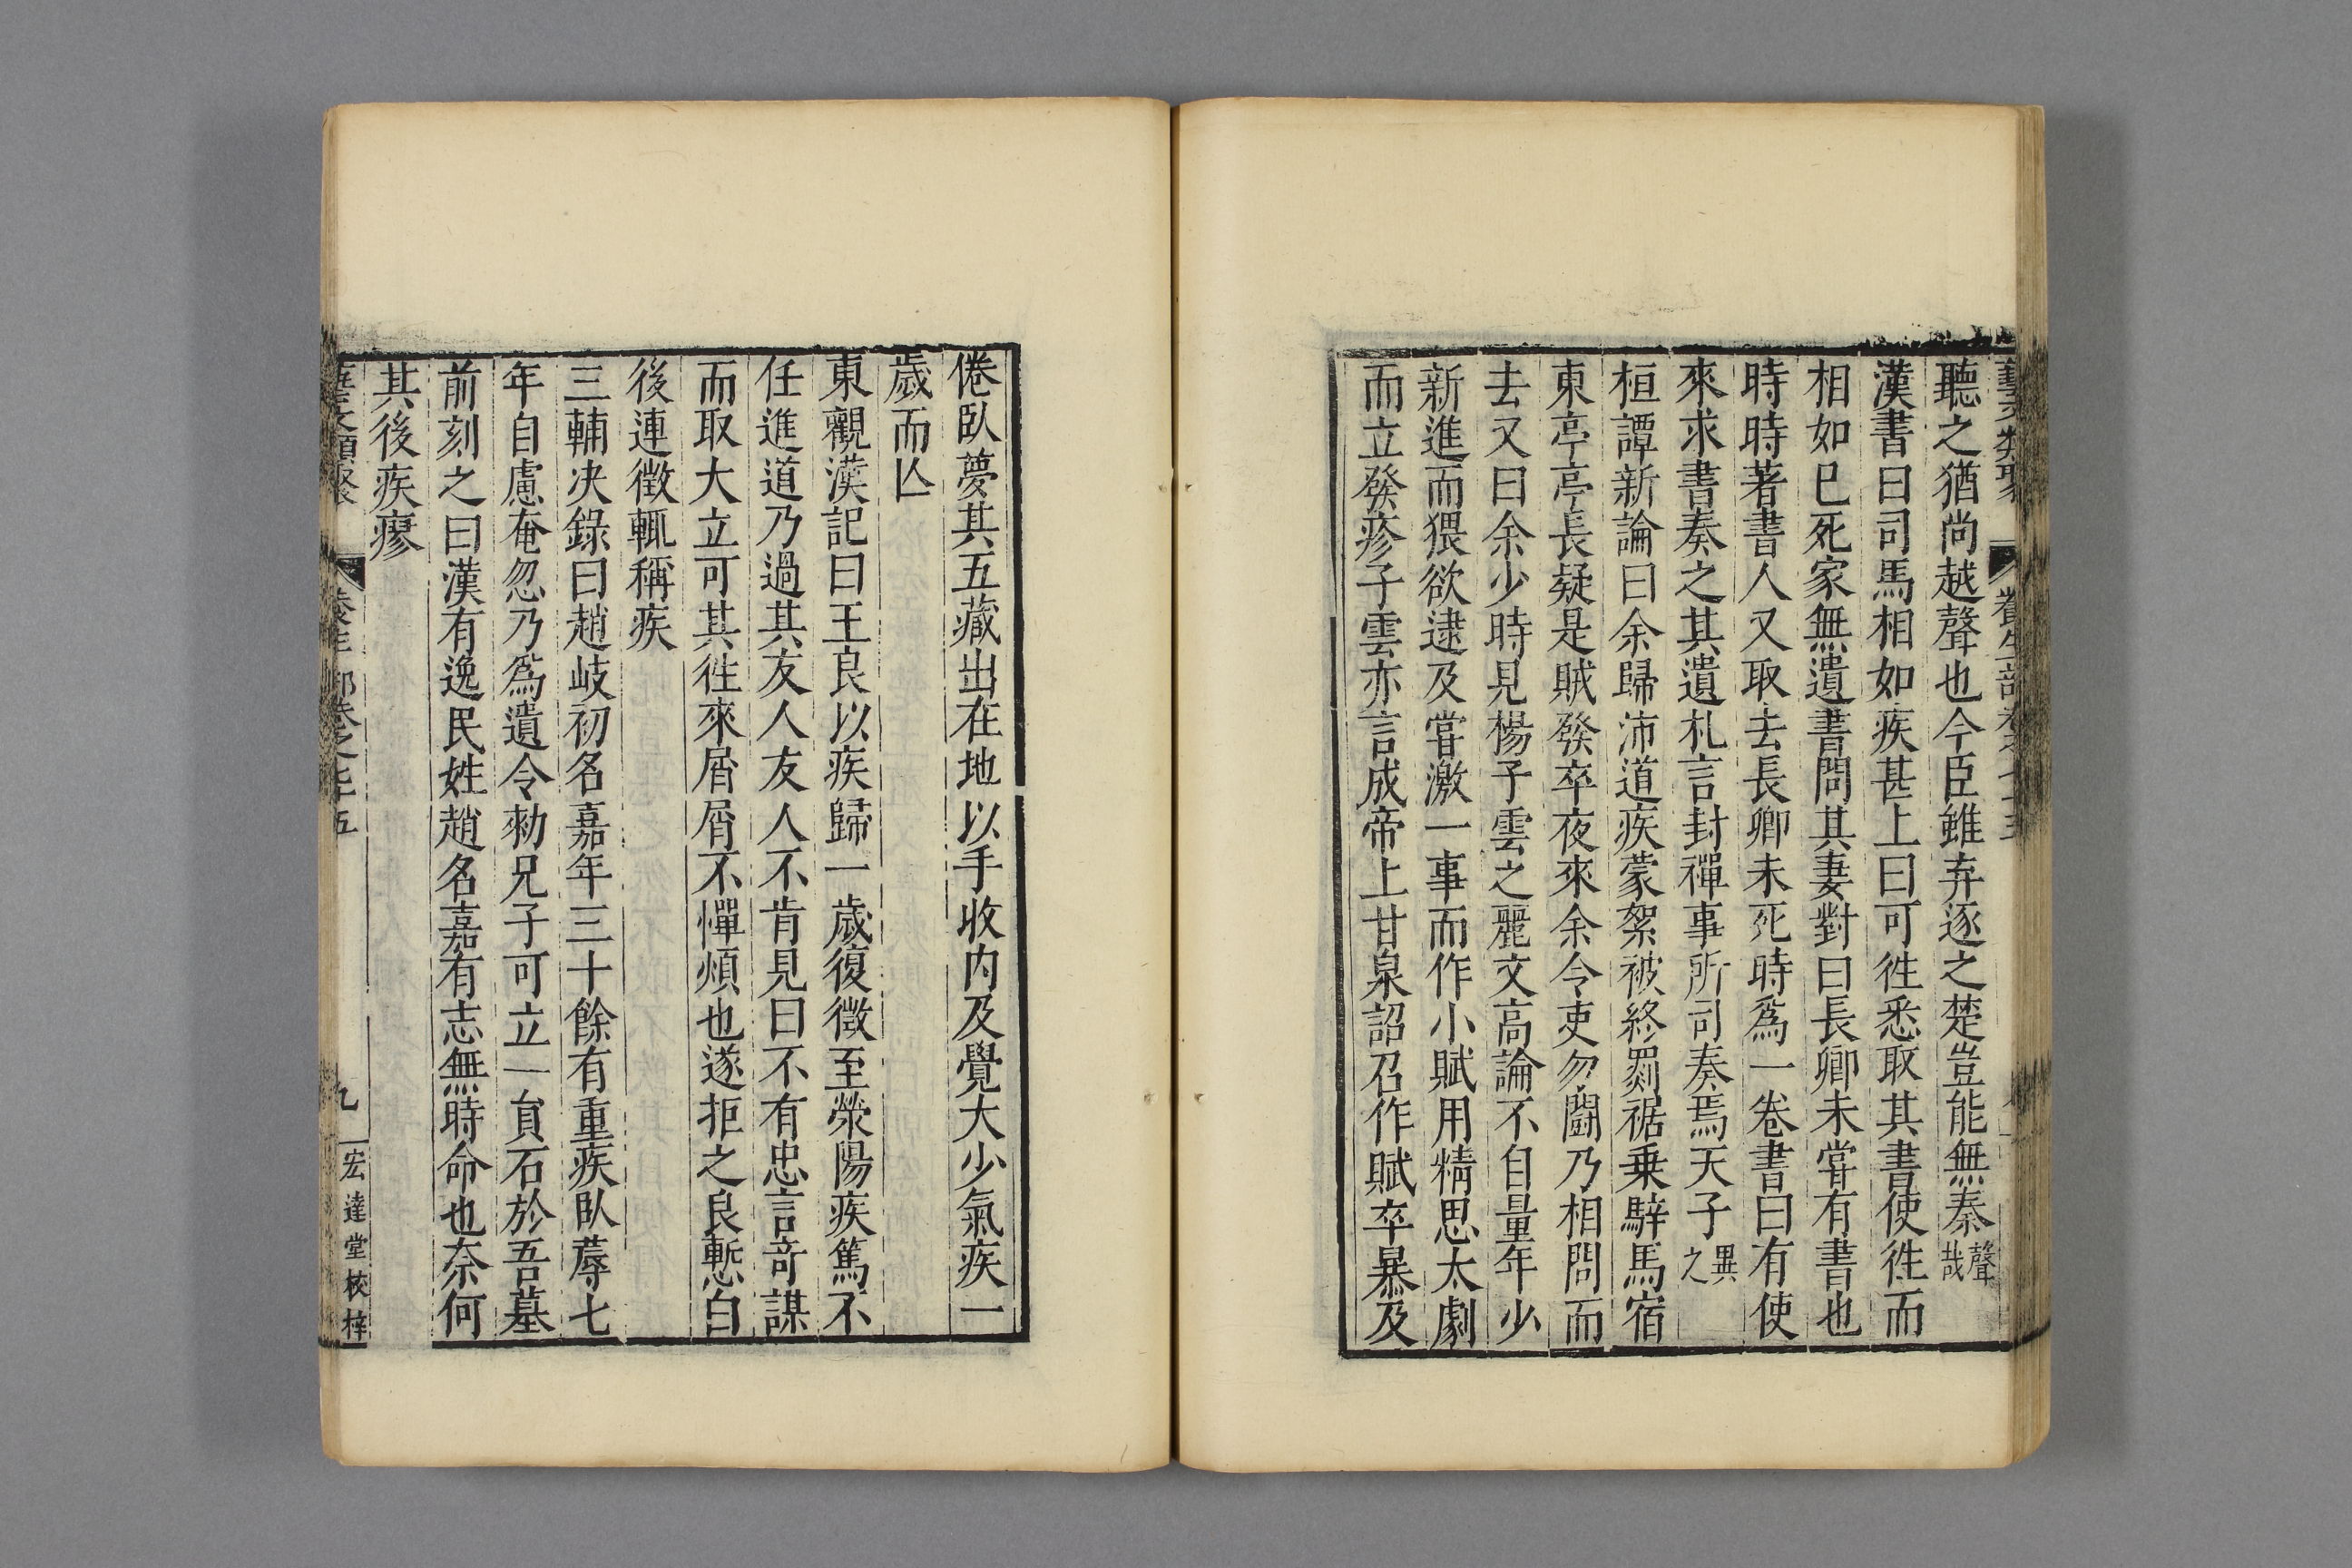 聽之猶尚越聲也今臣雖弃逐之楚豈能無秦聲哉
漢書曰司馬相如疾甚上曰可徃悉取其書使徃而
相如已死家無遺書問其妻對曰長卿未甞有書也
時時著書人又取去長卿未死時爲一卷書曰有使
來求書奏之其遺札言封禪事所司奏焉天子異之
桓譚新論曰余歸沛道疾蒙絮被終罽裾乗騂馬宿
東亭亭長疑是賊發卒夜來余令吏勿鬪乃相問而
去又曰余少時見楊子雲之麗文高論不自量年少
新進而猥欲逮及甞激一事而作小賦用精思太劇
而立發疹子雲亦言成帝上甘泉詔召作賦卒暴及
倦臥夢其五藏出在地以手收内及覺大少氣疾一
歲而亾
東觀漢記曰王良以疾歸一歲復徵至滎陽疾篤不
任進道乃過其友人友人不肯見曰不有忠言竒謀
而取大立可其徃來屑屑不憚煩也遂拒之良慙自
後連徵輒稱疾
三輔决錄曰趙岐初名嘉年三十餘有重疾臥蓐七
年自慮奄忽乃爲遺令勑兄子可立一貟石於吾墓
前刻之曰漢有逸民姓趙名嘉有志無時命也奈何
其後疾瘳
九
宏達堂校梓